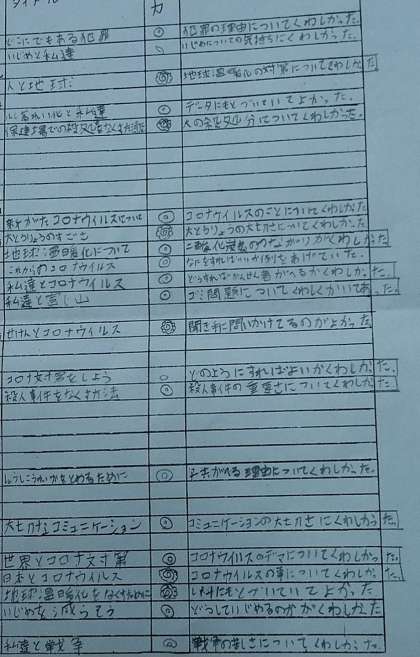 タイトル 力
どこにでもある犯罪 ◎ 犯罪の理由についてくわしかった。
いじめと私達 ○ いじめについての気持ちにくわしかった。
人と地球 ◎ 地球温暖化の対策についてくわしかった
化と私達 ◎ データにもとづいていてよかった。
保健 での殺処 をなくす方法 ◎ 犬の殺処分についてくわしかった。
新がたコロナウイルスについて ◎ コロナウイルスのことについてくわしかった。
大とうりょうのすごさ ◎ 大とうりょうの大切さについてくわしかった。
地球温暖化について ◎ 二酸化炭素のつながりがくわしかった。
これからのコロナウイルス ◎ なにをすればいいか例をあげていた。
私達とコロナウイルス ◎ どうすればかんせん者がへるかくわしかった。
私達と富じ山 ◎ ゴミ問題についてくわしくかいてあった。
せけんとコロナウイルス ◎ 聞き手に問いかけてるのがよかった。
コロナ対策をしよう ○ どのようにすればよいかくわしかった。
殺人事件をなくす方法 ◎ 殺人事件の重要さについてくわしかった。
をとめるために ◎ 理由についてくわしかった。
大切なコミュニケーション ◎ コミュニケーションの大切さにくわしかった。
世界とコロナ対策 ◎ コロナウイルスのデマについてくわしかった。
日本とコロナウイルス ◎ コロナウイルスの事についてくわしかった。
地球温暖化をなくすために ◎ にもとづいていてよかった。
いじめを減らそう ◎ どうしていじめるのかがくわしかった
私達と戦争 ◎ 戦争の についてくわしかった。